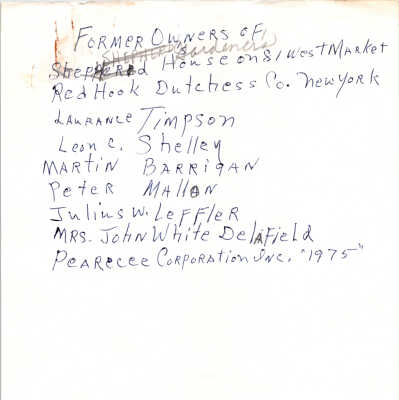 Former Owners of
Shepherd's Gardener's
Shepherd House on 81 West Market
Red Hook Dutchess Co. New York
Laurance Timpson
Leon C. Shelley
Martin Barrigan
Peter Mallon
Julius W. Leffler
Mrs. John White Delafield
Pearecee Corporation Inc. "1975"